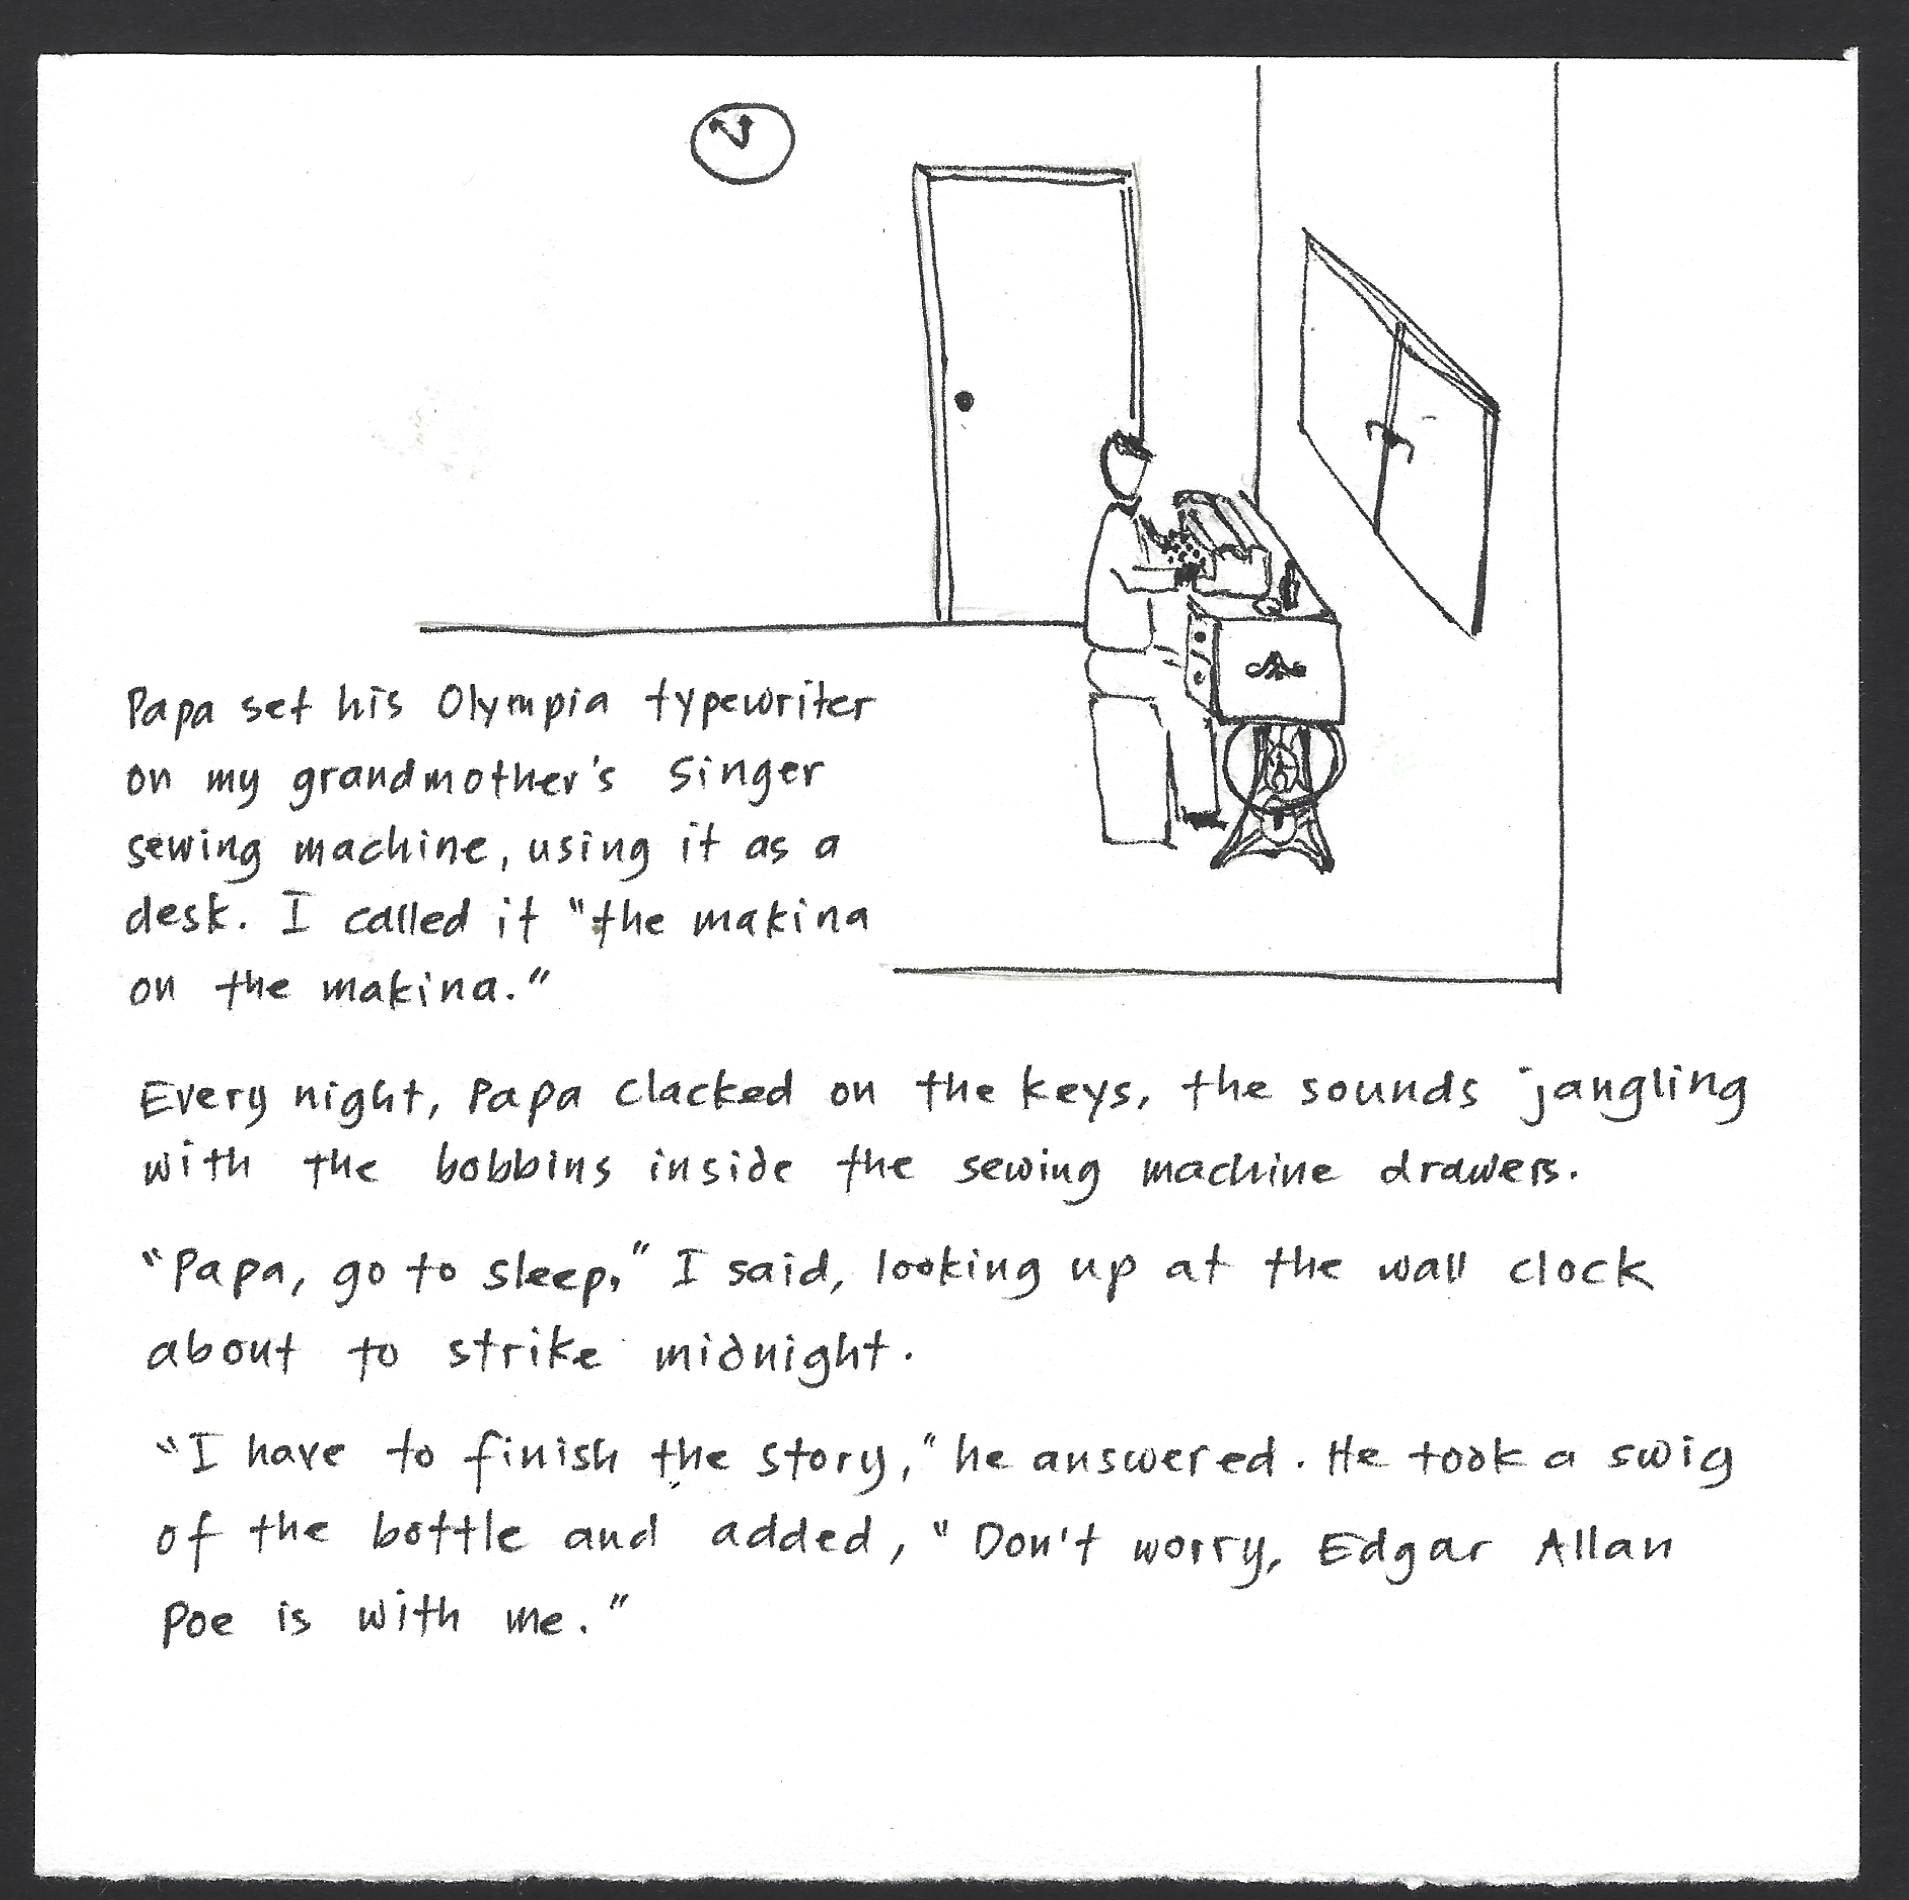 Papa set his Olympia typewriter
on my grandmother's Singer
sewing machine, using it as a
desk. I called it "the makina
on the makina."
Every night, Papa clacked on the keys, the sounds jangling
with the bobbins inside the sewing machine drawers.
"Papa, go to sleep," I said, looking up at the wall clock
about to strike midnight.
"I have to finish the story," he answered. He took a swig
of the bottle and added, "Don't worry, Edgar Allan
Poe is with me."